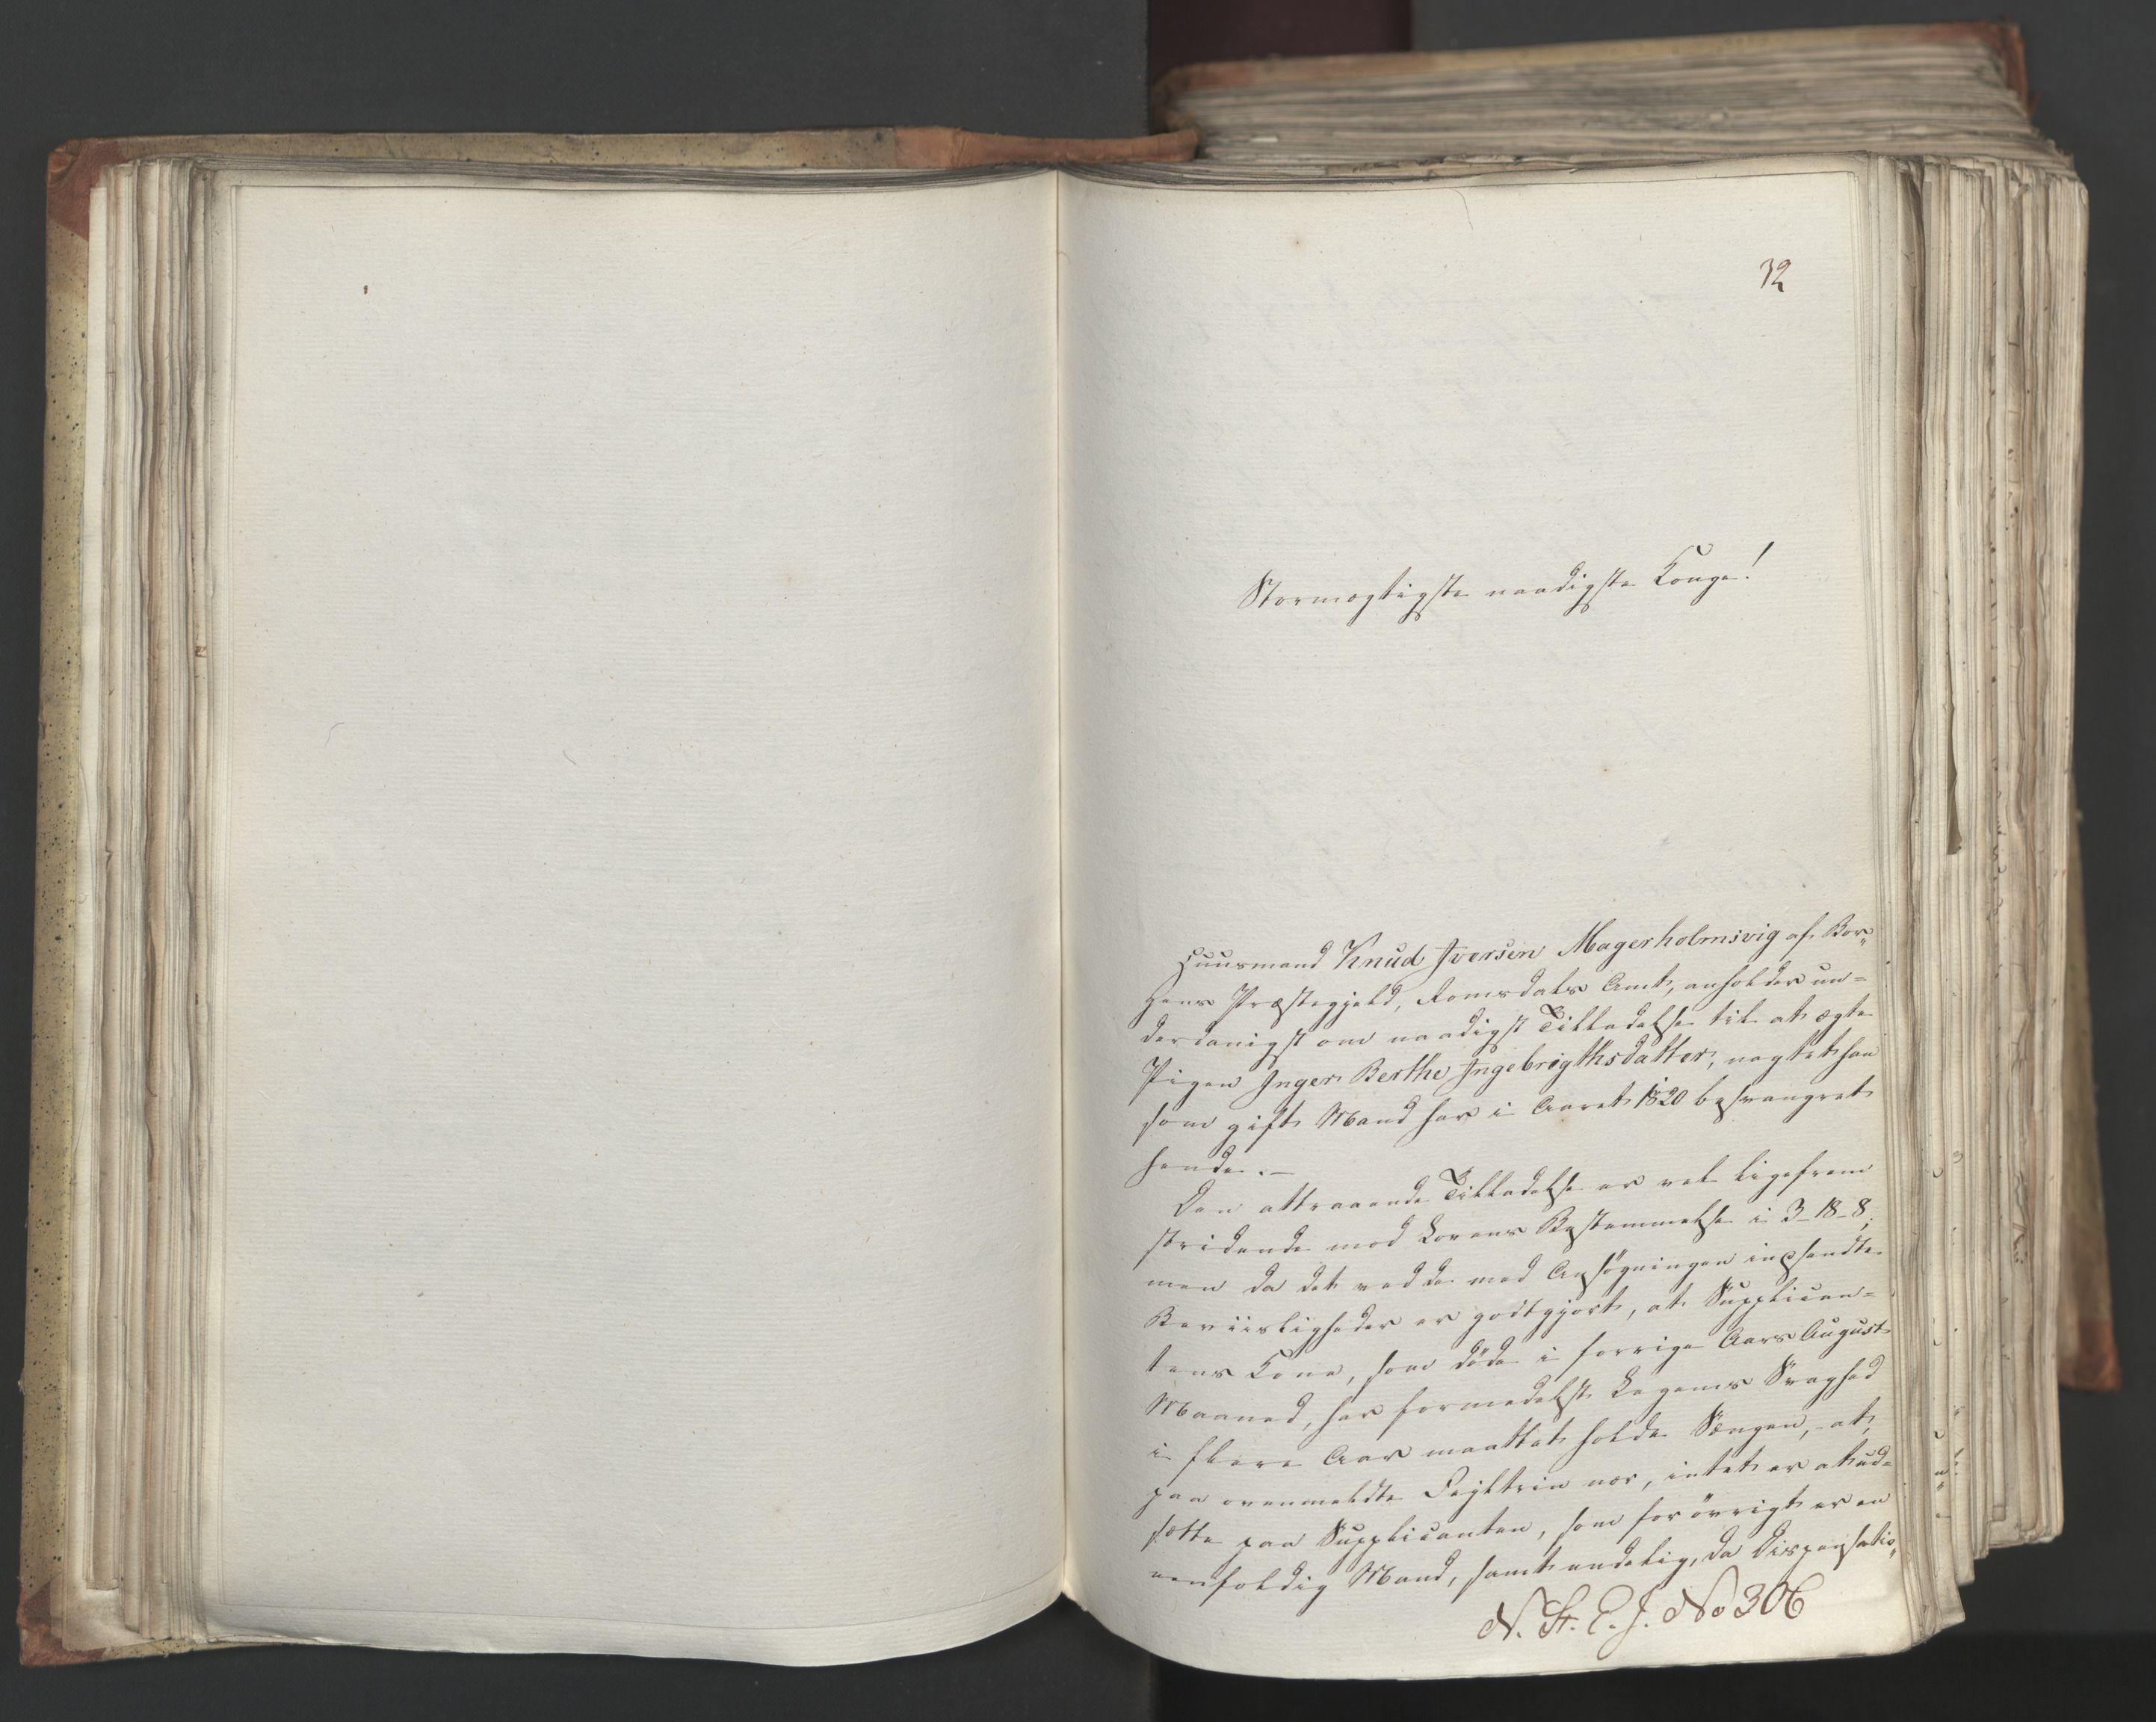 32
Stormægtigste naadigste Konge!
Huusmand Knud Iversen Magerholmsvig af Bor-
gens Præstegjeld, Romsdals Amt, anholder un-
derdanigst om naadigst Tilladelse til at ægte
Pigen Inger Berthe Ingebrigthsdatter, uagtet han
som gift Mand har i Aaret 1820 besvangret
hende. -
Den attraaende Tilladelse er vel ligefrem
stridende mod Lovens Bestemmelse i 3-18-8;
men da det ved de med Ansøgningen indsendte
Beviisligheder er godtgjort, at Supplican-
tens Kone, som døde i forrige Aars August
Maaned, har formedelst Legems Svaghed
i flere Aar maattet holde Sængen, at,
paa ovenmeldte Fejltrin nær, intet er at ud-
sætte paa Supplicanten, som forøvrigt er en
eenfoldig Mand, samt endelig, da Dispensatio-
N. St. E. J. No 306